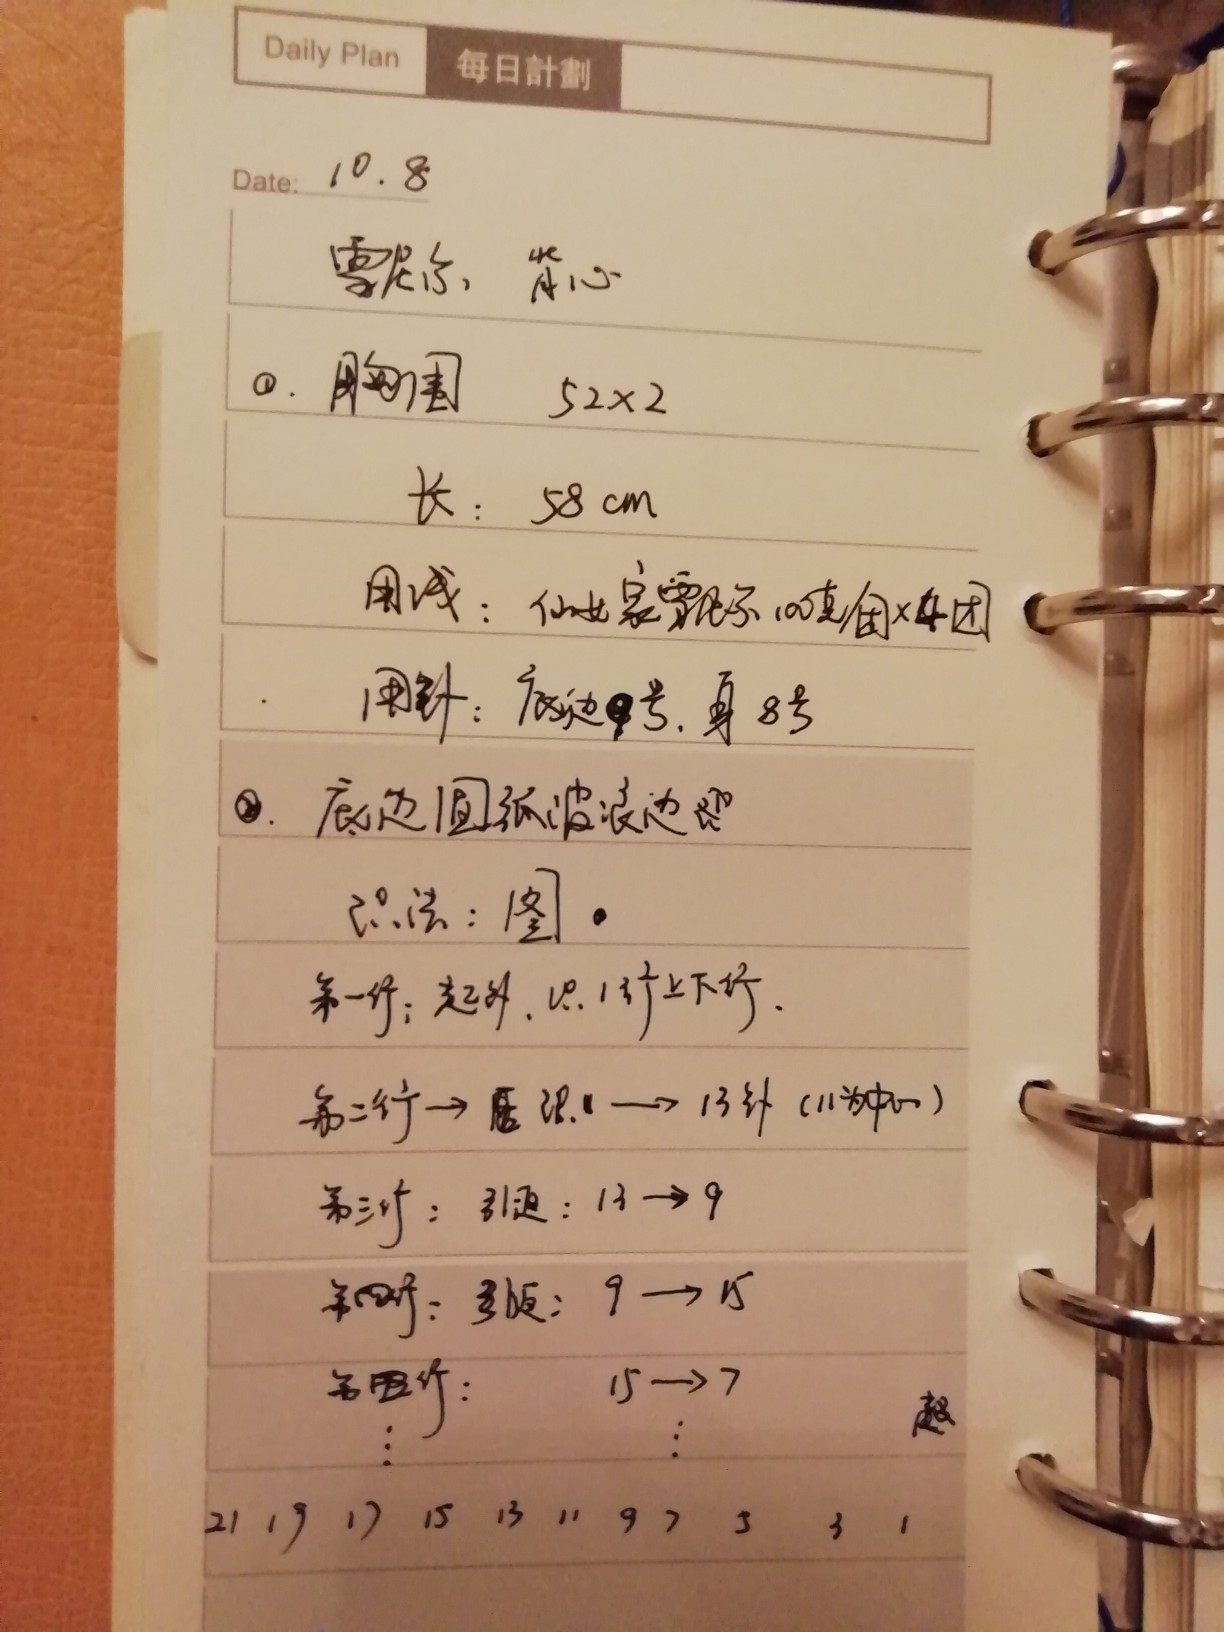 Daily Plan 每日計劃
Date: 10.8
雪尼尔 背心
①. 胸围 52×2
长: 58 cm
用线: 仙女家雪尼尔100克/团×4团
用针: 底边9号. 身8号
②. 底边圆弧波浪边
织法: 图
第一行: 起针. 织 上下针.
第二行→ 织 → 13针 (11为中心)
第三行: 引返: 13→9
第四行: 引返: 9→15
第五行: 15→7
⋮ ⋮
起
21 19 17 15 13 11 9 7 5 3 1